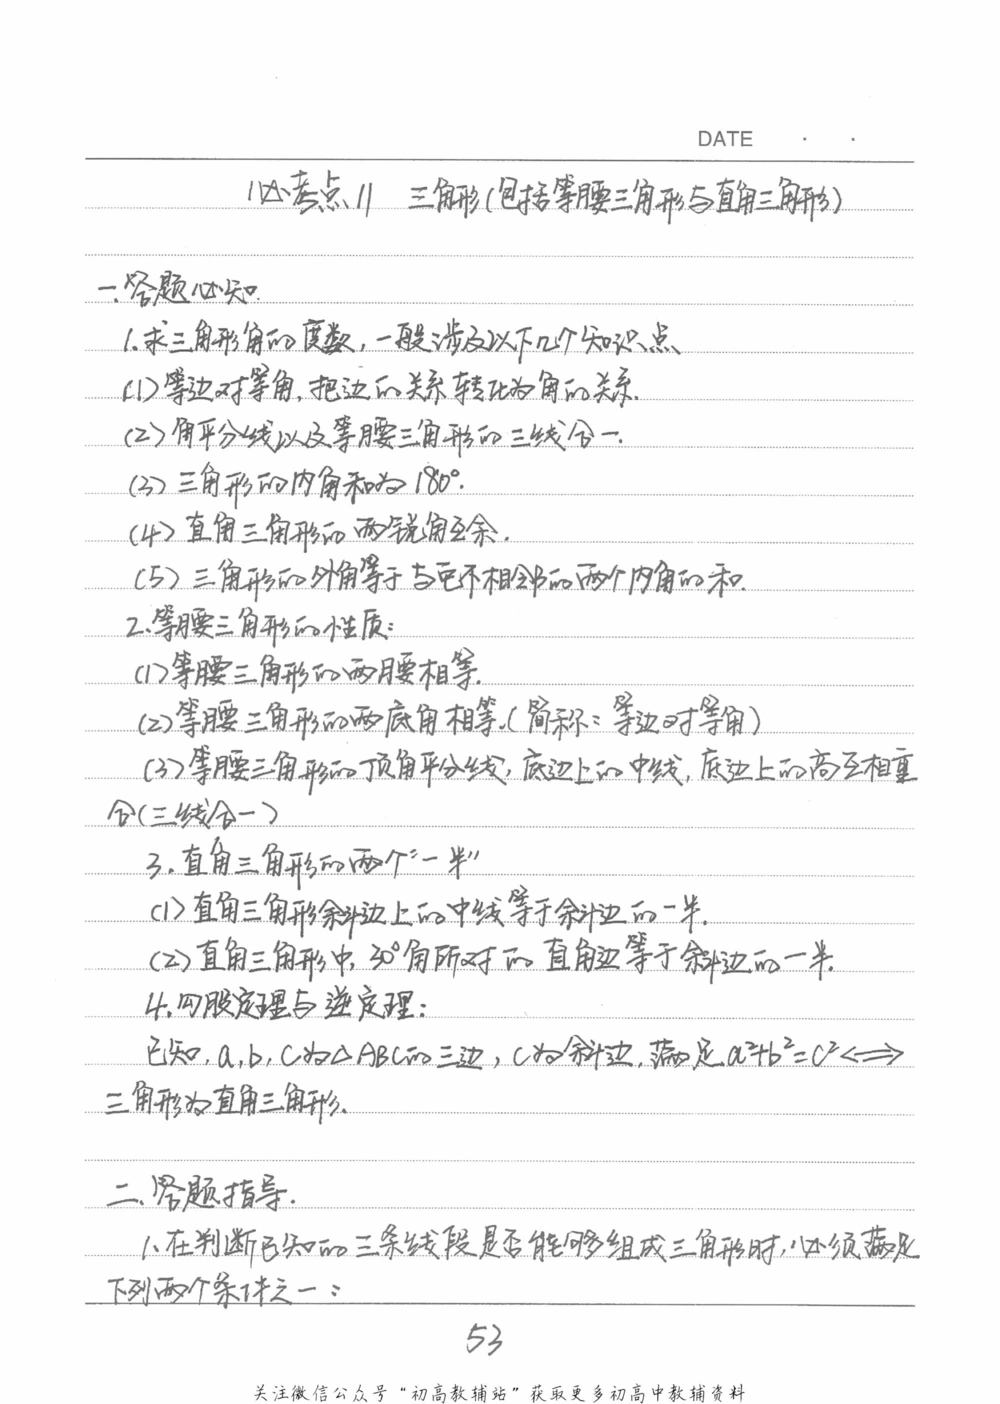 DATE · ·
必考点11 三角形(包括等腰三角形与直角三角形)
一.答题必知.
1.求三角形角的度数,一般涉及以下几个知识点、
(1)等边对等角,把边的关系转化为角的关系.
(2)角平分线以及等腰三角形的三线合一.
(3)三角形的内角和为180°.
(4)直角三角形的两锐角互余.
(5)三角形的外角等于与它不相邻的两个内角的和.
2.等腰三角形的性质:
(1)等腰三角形的两腰相等.
(2)等腰三角形的两底角相等.(简称:等边对等角)
(3)等腰三角形的顶角平分线,底边上的中线,底边上的高互相重
合(三线合一)
3.直角三角形的两个“一半”
(1)直角三角形斜边上的中线等于斜边的一半.
(2)直角三角形中,30°角所对的直角边等于斜边的一半.
4.勾股定理与逆定理:
已知,a,b,c为△ABC的三边,c为斜边,满足a²+b²=c²<=>
三角形为直角三角形.
二.答题指导.
1.在判断已知的三条线段是否能够组成三角形时,必须满足
下列两个条件之一:
53
关注微信公众号“初高教辅站”获取更多初高中教辅资料